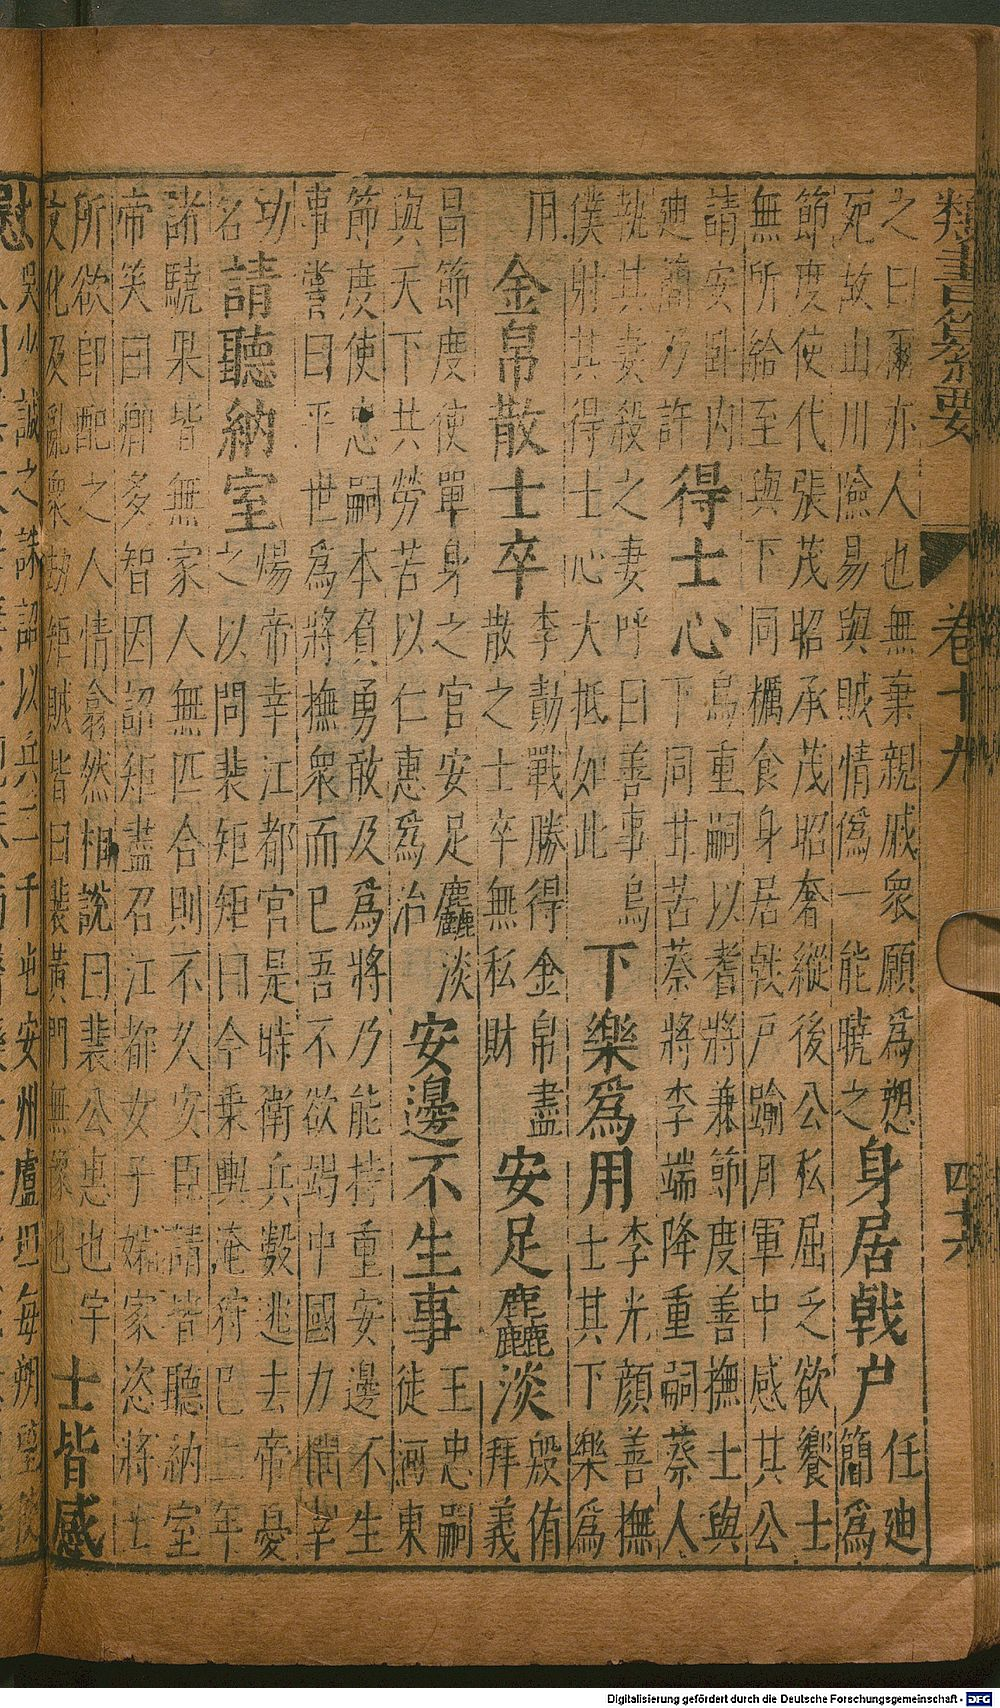 類書纂要 卷十九 四十六
之曰爾亦人也無棄親戚衆願爲愬
死故山川險易與賊情僞一能曉之
身居戟戶
任迪
簡爲
節度使代張茂昭承茂昭奢縱後公私屈乏欲饗士
無所給至與下同櫔食身居戟戶踰月軍中感其公
請安臥內
迪簡乃許
得士心
烏重嗣以耆將兼節度善撫士與
下同甘苦蔡將李端降重嗣蔡人
執其妻殺之妻呼曰善事烏
僕射其得士心大抵如此
下樂爲用
李光顔善撫
士其下樂爲
用
金帛散士卒
李勣戰勝得金帛盡
散之士卒無私財
安足麤淡
殷侑
拜義
昌節度使單身之官安足麤淡
與天下共勞苦以仁惠爲治
安邊不生事
王忠嗣
徒河東
節度使忠嗣本負勇敢及爲將乃能持重安邊不生
事嘗曰平世爲將撫衆而已吾不欲竭中國力幸
功
名
請聽納室
煬帝幸江都宮是時衛兵數逃去帝憂
之以問裴矩矩曰今乘輿淹狩已二年
諸驍果皆無家人無匹合則不久安臣請皆聽納室
帝笑曰卿多智因詔矩盡召江都女子孀家恣將士
所欲即配之人情翕然相說曰裴公惠也宇
文化及亂衆劫矩賊皆曰裴黃門無豫也
士皆感
慰
吳少誠之誅詔以兵二千屯安州盧坦每朔望使
Digitalisierung gefördert durch die Deutsche Forschungsgemeinschaft - DFG